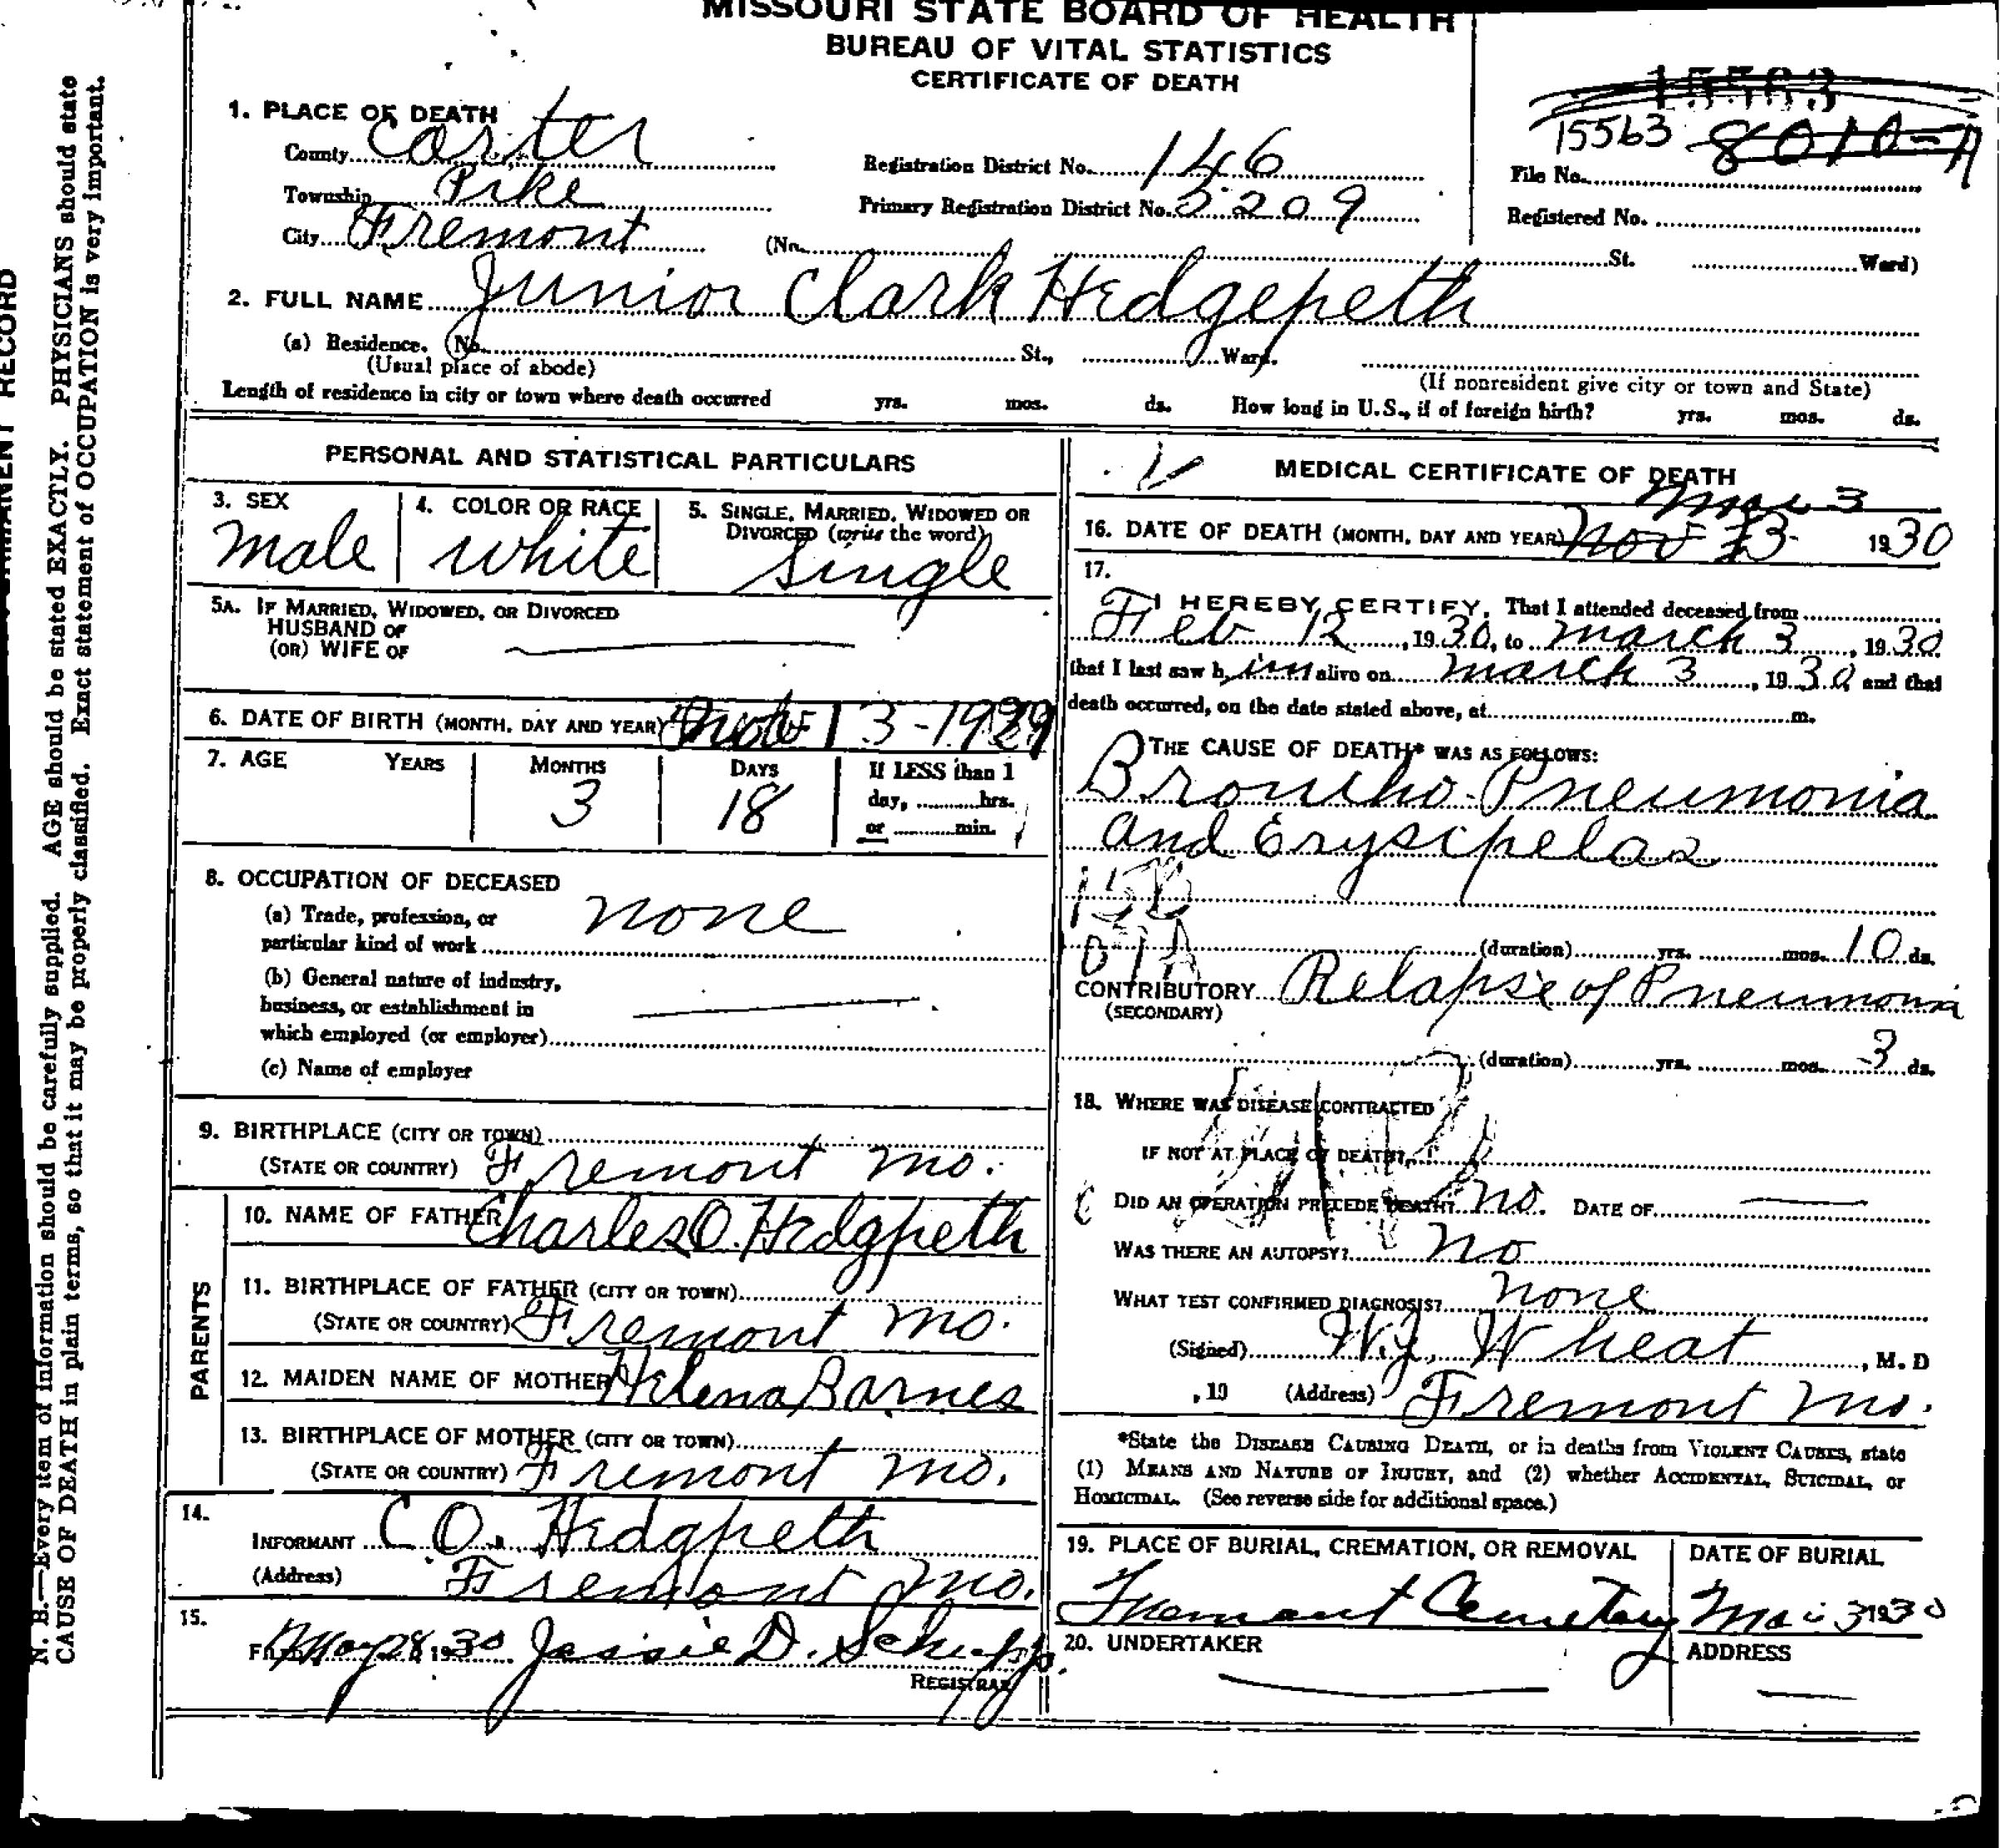 MISSOURI STATE BOARD OF HEALTH
BUREAU OF VITAL STATISTICS
CERTIFICATE OF DEATH
15563
15563 8010-A
File No.
Registered No.
1. PLACE OF DEATH
County Carter Registration District No. 146
Township Pike Primary Registration District No. 5209
City Fremont (No. St. Ward)
2. FULL NAME Junior Clark Hedgepeth
(a) Residence. No. St., Ward.
(Usual place of abode) (If nonresident give city or town and State)
Length of residence in city or town where death occurred yrs. mos. ds. How long in U.S., if of foreign birth? yrs. mos. ds.
PERSONAL AND STATISTICAL PARTICULARS
3. SEX
male
4. COLOR OR RACE
white
5. SINGLE, MARRIED, WIDOWED OR
DIVORCED (write the word)
Single
5A. IF MARRIED, WIDOWED, OR DIVORCED
HUSBAND OF
(OR) WIFE OF
6. DATE OF BIRTH (MONTH, DAY AND YEAR) 13-1929
7. AGE YEARS MONTHS DAYS If LESS than 1
3 18 day, hrs.
or min.
8. OCCUPATION OF DECEASED
(a) Trade, profession, or
particular kind of work none
(b) General nature of industry,
business, or establishment in
which employed (or employer)
(c) Name of employer
9. BIRTHPLACE (CITY OR TOWN)
(STATE OR COUNTRY) Fremont Mo.
PARENTS
10. NAME OF FATHER Charles O. Hedgpeth
11. BIRTHPLACE OF FATHER (CITY OR TOWN)
(STATE OR COUNTRY) Fremont Mo.
12. MAIDEN NAME OF MOTHER Helena Barnes
13. BIRTHPLACE OF MOTHER (CITY OR TOWN)
(STATE OR COUNTRY) Fremont Mo.
14.
INFORMANT C O. Hedgpeth
(Address) Fremont Mo.
15.
May 28 1930 Jessie D. Schupp
REGISTRAR
MEDICAL CERTIFICATE OF DEATH
Mar 3
16. DATE OF DEATH (MONTH, DAY AND YEAR) Nov 1930
17.
I HEREBY CERTIFY, That I attended deceased from
Feb 12, 1930, to March 3, 1930
that I last saw him alive on March 3, 1930 and that
death occurred, on the date stated above, at m.
THE CAUSE OF DEATH* WAS AS FOLLOWS:
Broncho-Pneumonia
and Erysipelas
(duration) yrs. mos. 10 ds.
CONTRIBUTORY Relapse of Pneumonia
(SECONDARY)
(duration) yrs. mos. 3 ds.
18. WHERE WAS DISEASE CONTRACTED
IF NOT AT PLACE OF DEATH?
DID AN OPERATION PRECEDE DEATH? no. DATE OF
WAS THERE AN AUTOPSY? no
WHAT TEST CONFIRMED DIAGNOSIS? none
(Signed) W.J. Wheat, M. D
, 19 (Address) Fremont Mo.
*State the DISEASE CAUSING DEATH, or in deaths from VIOLENT CAUSES, state
(1) MEANS AND NATURE OF INJURY, and (2) whether ACCIDENTAL, SUICIDAL, or
HOMICIDAL. (See reverse side for additional space.)
19. PLACE OF BURIAL, CREMATION, OR REMOVAL
Fremont Cemetery
DATE OF BURIAL
Mar 3 1930
20. UNDERTAKER
ADDRESS
N. B.—Every item of information should be carefully supplied. AGE should be stated EXACTLY. PHYSICIANS should state
CAUSE OF DEATH in plain terms, so that it may be properly classified. Exact statement of OCCUPATION is very important.
RECORD